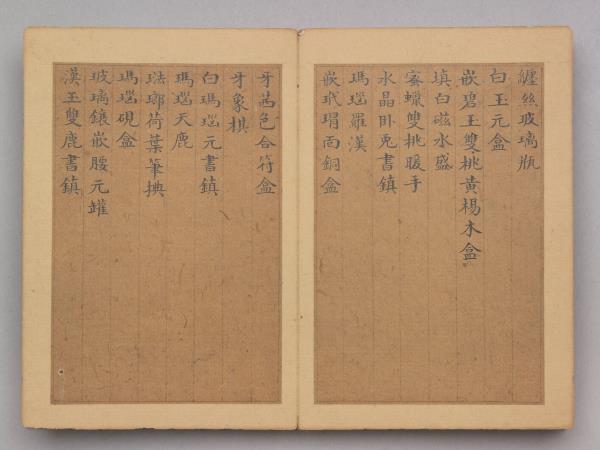 纏絲玻璃瓶
白玉元盒
嵌碧玉雙桃黃楊木盒
填白磁水盛
蜜蠟雙桃暖手
水晶卧兎書鎮
瑪瑙羅漢
嵌玳瑁面銅盒
牙茜色合符盒
牙象棋
白瑪瑙元書鎮
瑪瑙天鹿
琺瑯荷葉筆掭
瑪瑙硯盒
玻璃鑲嵌腰元罐
漢玉雙鹿書鎮